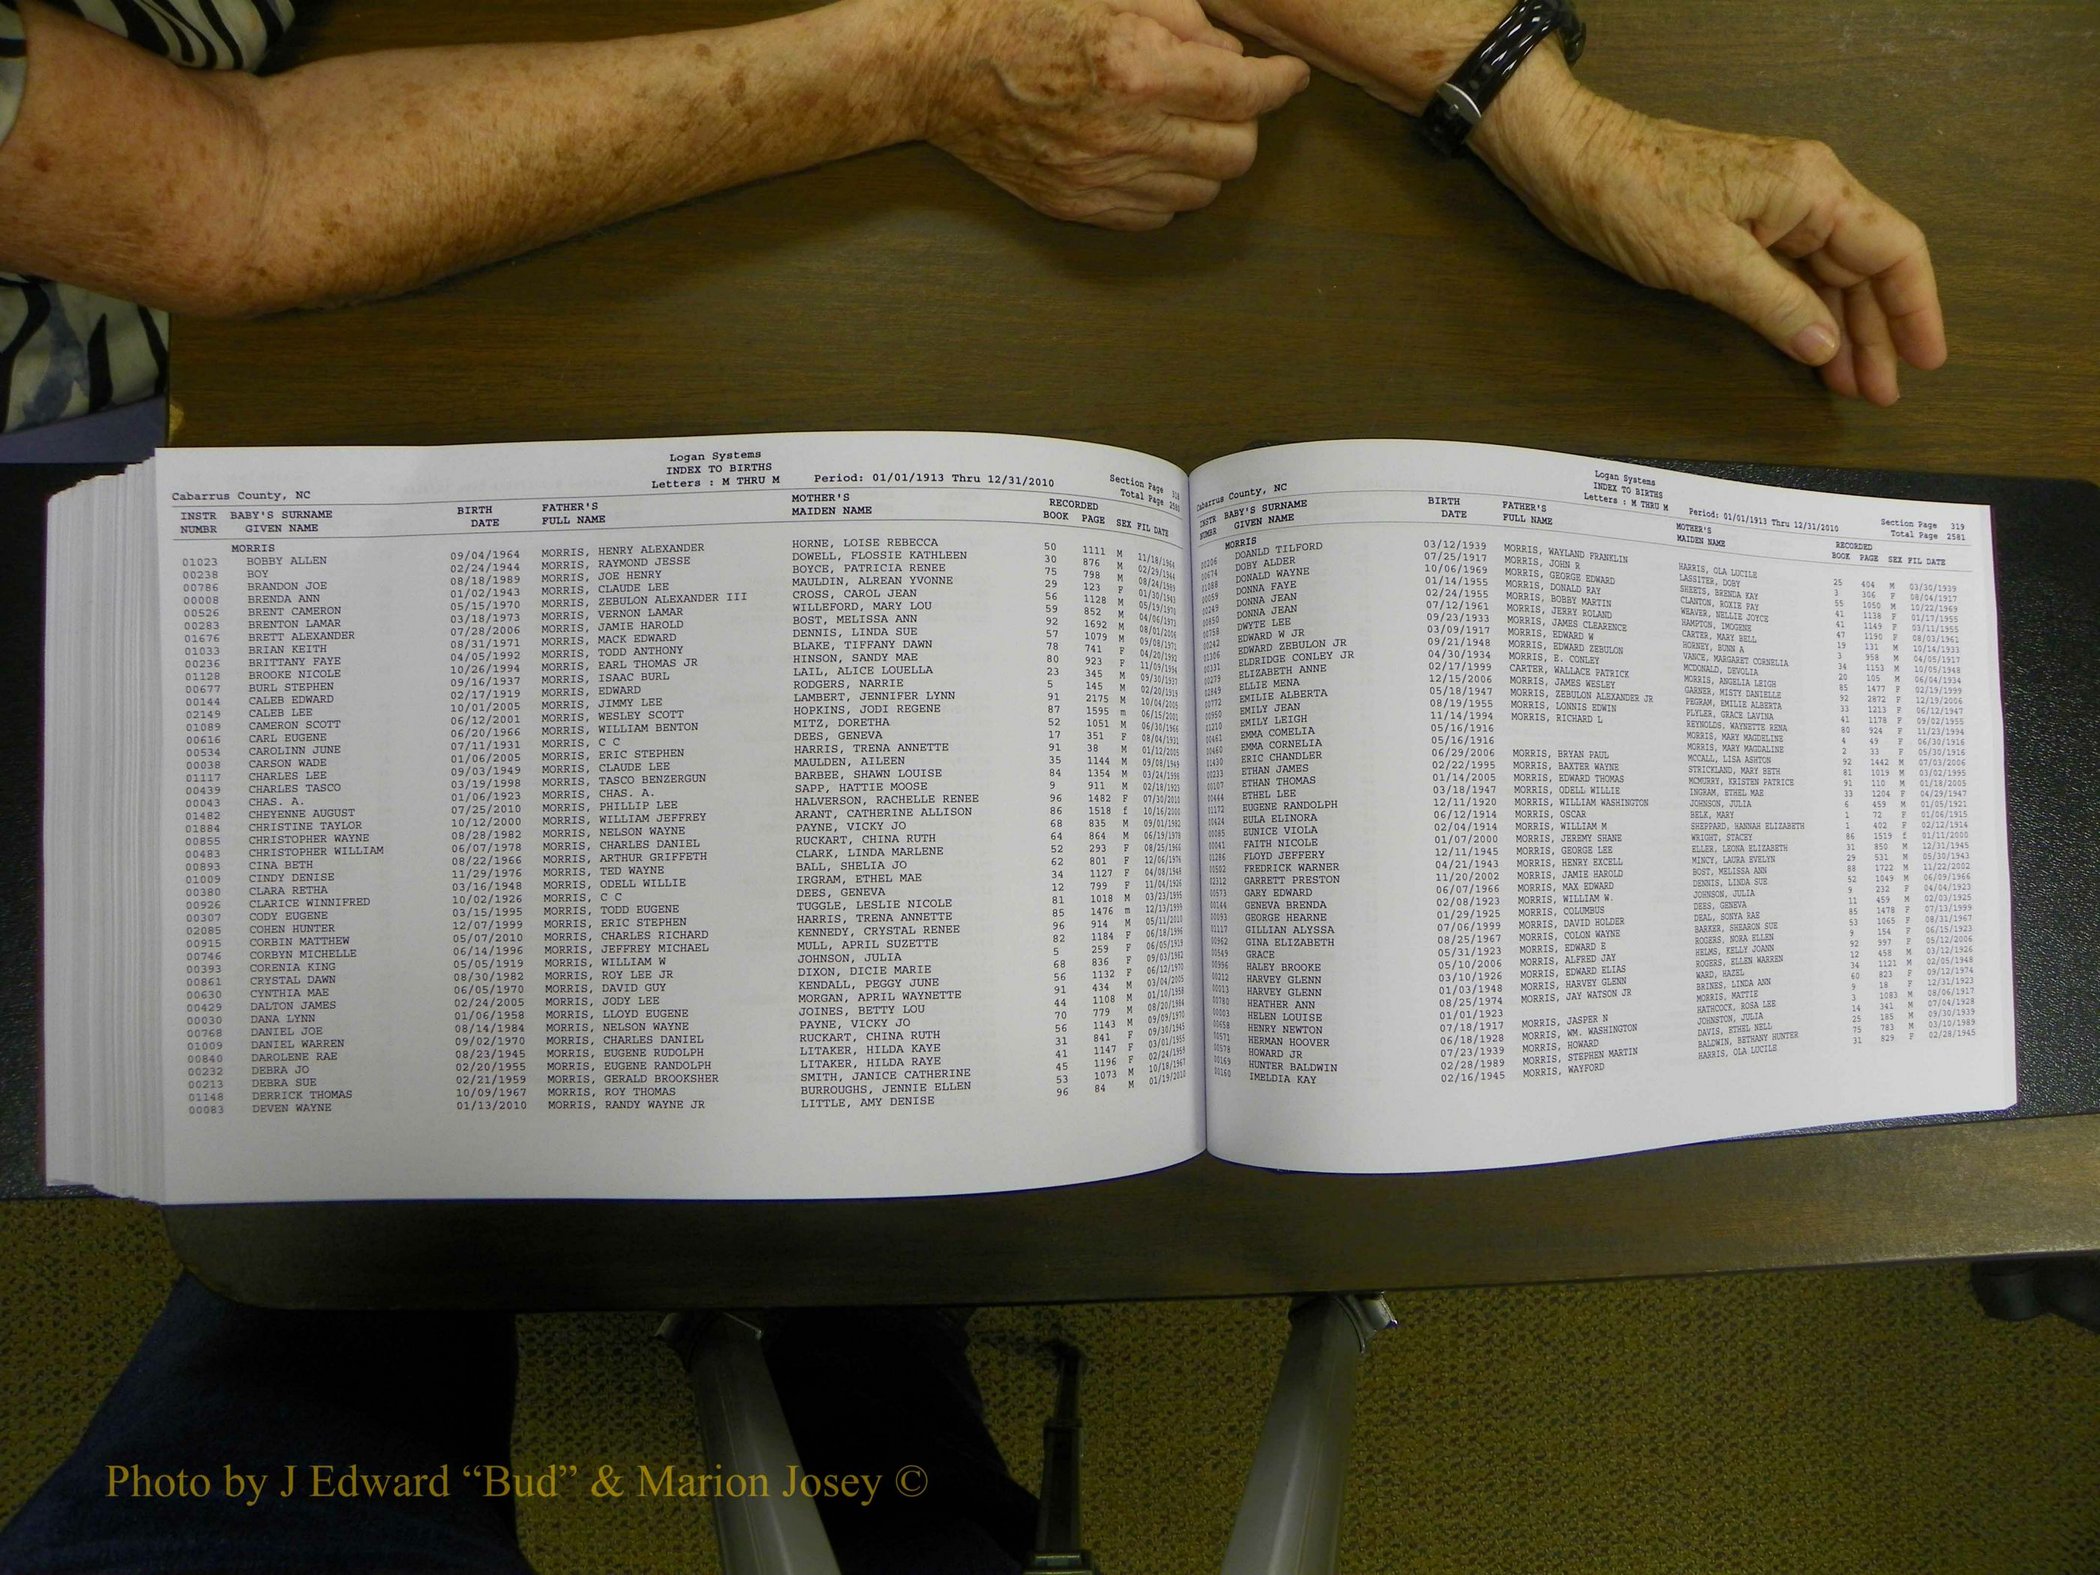 Logan Systems
INDEX TO BIRTHS
Cabarrus County, NC Letters : M THRU M Period: 01/01/1913 Thru 12/31/2010 Section Page 318
Total Page 2580
INSTR BABY'S SURNAME BIRTH FATHER'S MOTHER'S RECORDED
NUMBR GIVEN NAME DATE FULL NAME MAIDEN NAME BOOK PAGE SEX FIL DATE
MORRIS
01023 BOBBY ALLEN 09/04/1964 MORRIS, HENRY ALEXANDER HORNE, LOISE REBECCA 50 1111 M 11/18/1964
00238 BOY 02/24/1944 MORRIS, RAYMOND JESSE DOWELL, FLOSSIE KATHLEEN 30 876 M 02/29/1944
00786 BRANDON JOE 08/18/1989 MORRIS, JOE HENRY BOYCE, PATRICIA RENEE 75 798 M 08/24/1989
00008 BRENDA ANN 01/02/1943 MORRIS, CLAUDE LEE MAULDIN, ALREAN YVONNE 29 123 F 01/30/1943
00526 BRENT CAMERON 05/15/1970 MORRIS, ZEBULON ALEXANDER III CROSS, CAROL JEAN 56 1128 M 05/19/1970
00283 BRENTON LAMAR 03/18/1973 MORRIS, VERNON LAMAR WILLEFORD, MARY LOU 59 852 M 04/06/1973
01676 BRETT ALEXANDER 07/28/2006 MORRIS, JAMIE HAROLD BOST, MELISSA ANN 92 1692 M 08/01/2006
01033 BRIAN KEITH 08/31/1971 MORRIS, MACK EDWARD DENNIS, LINDA SUE 57 1079 M 09/08/1971
00236 BRITTANY FAYE 04/05/1992 MORRIS, TODD ANTHONY BLAKE, TIFFANY DAWN 78 741 F 04/20/1992
01128 BROOKE NICOLE 10/26/1994 MORRIS, EARL THOMAS JR HINSON, SANDY MAE 80 923 F 11/09/1994
00677 BURL STEPHEN 09/16/1937 MORRIS, ISAAC BURL LAIL, ALICE LOUELLA 23 345 M 09/30/1937
00144 CALEB EDWARD 02/17/1919 MORRIS, EDWARD RODGERS, NARRIE 5 145 M 02/20/1919
02149 CALEB LEE 10/01/2005 MORRIS, JIMMY LEE LAMBERT, JENNIFER LYNN 91 2175 M 10/04/2005
01089 CAMERON SCOTT 06/12/2001 MORRIS, WESLEY SCOTT HOPKINS, JODI REGENE 87 1595 m 06/15/2001
00616 CARL EUGENE 06/20/1966 MORRIS, WILLIAM BENTON MITZ, DORETHA 52 1051 M 06/30/1966
00534 CAROLINN JUNE 07/11/1931 MORRIS, C C DEES, GENEVA 17 351 F 08/04/1931
00038 CARSON WADE 01/06/2005 MORRIS, ERIC STEPHEN HARRIS, TRENA ANNETTE 91 38 M 01/12/2005
01117 CHARLES LEE 09/03/1949 MORRIS, CLAUDE LEE MAULDEN, AILEEN 35 1144 M 09/08/1949
00439 CHARLES TASCO 03/19/1998 MORRIS, TASCO BENZERGUN BARBEE, SHAWN LOUISE 84 1354 M 03/24/1998
00043 CHAS. A. 01/06/1923 MORRIS, CHAS. A. SAPP, HATTIE MOOSE 9 911 M 02/18/1923
01482 CHEYENNE AUGUST 07/25/2010 MORRIS, PHILLIP LEE HALVERSON, RACHELLE RENEE 96 1482 F 07/30/2010
01884 CHRISTINE TAYLOR 10/12/2000 MORRIS, WILLIAM JEFFREY ARANT, CATHERINE ALLISON 86 1518 f 10/16/2000
00855 CHRISTOPHER WAYNE 08/28/1982 MORRIS, NELSON WAYNE PAYNE, VICKY JO 68 835 M 09/01/1982
00483 CHRISTOPHER WILLIAM 06/07/1978 MORRIS, CHARLES DANIEL RUCKART, CHINA RUTH 64 864 M 06/19/1978
00893 CINA BETH 08/22/1966 MORRIS, ARTHUR GRIFFETH CLARK, LINDA MARLENE 52 293 F 08/25/1966
01009 CINDY DENISE 11/29/1976 MORRIS, TED WAYNE BALL, SHELIA JO 62 801 F 12/06/1976
00380 CLARA RETHA 03/16/1948 MORRIS, ODELL WILLIE IRGRAM, ETHEL MAE 34 1127 F 04/08/1948
00926 CLARICE WINNIFRED 10/02/1926 MORRIS, C C DEES, GENEVA 12 799 F 11/04/1926
00307 CODY EUGENE 03/15/1995 MORRIS, TODD EUGENE TUGGLE, LESLIE NICOLE 81 1018 M 03/23/1995
02085 COHEN HUNTER 12/07/1999 MORRIS, ERIC STEPHEN HARRIS, TRENA ANNETTE 85 1476 m 12/13/1999
00915 CORBIN MATTHEW 05/07/2010 MORRIS, CHARLES RICHARD KENNEDY, CRYSTAL RENEE 96 914 M 05/11/2010
00746 CORBYN MICHELLE 06/14/1996 MORRIS, JEFFREY MICHAEL MULL, APRIL SUZETTE 82 1184 F 06/18/1996
00393 CORENIA KING 05/05/1919 MORRIS, WILLIAM W JOHNSON, JULIA 5 259 F 06/05/1919
00861 CRYSTAL DAWN 08/30/1982 MORRIS, ROY LEE JR DIXON, DICIE MARIE 68 836 F 09/03/1982
00630 CYNTHIA MAE 06/05/1970 MORRIS, DAVID GUY KENDALL, PEGGY JUNE 56 1132 F 06/12/1970
00429 DALTON JAMES 02/24/2005 MORRIS, JODY LEE MORGAN, APRIL WAYNETTE 91 434 M 03/04/2005
00030 DANA LYNN 01/06/1958 MORRIS, LLOYD EUGENE JOINES, BETTY LOU 44 1108 M 01/10/1958
00768 DANIEL JOE 08/14/1984 MORRIS, NELSON WAYNE PAYNE, VICKY JO 70 779 M 08/20/1984
01009 DANIEL WARREN 09/02/1970 MORRIS, CHARLES DANIEL RUCKART, CHINA RUTH 56 1143 M 09/09/1970
00840 DAROLENE RAE 08/23/1945 MORRIS, EUGENE RUDOLPH LITAKER, HILDA KAYE 31 841 F 09/30/1945
00232 DEBRA JO 02/20/1955 MORRIS, EUGENE RANDOLPH LITAKER, HILDA RAYE 41 1147 F 03/01/1955
00213 DEBRA SUE 02/21/1959 MORRIS, GERALD BROOKSHER SMITH, JANICE CATHERINE 45 1196 F 02/24/1959
01148 DERRICK THOMAS 10/09/1967 MORRIS, ROY THOMAS BURROUGHS, JENNIE ELLEN 53 1073 M 10/18/1967
00083 DEVEN WAYNE 01/13/2010 MORRIS, RANDY WAYNE JR LITTLE, AMY DENISE 96 84 M 01/19/2010
Logan Systems
INDEX TO BIRTHS
Cabarrus County, NC Letters : M THRU M Period: 01/01/1913 Thru 12/31/2010 Section Page 319
Total Page 2581
INSTR BABY'S SURNAME BIRTH FATHER'S MOTHER'S RECORDED
NUMBR GIVEN NAME DATE FULL NAME MAIDEN NAME BOOK PAGE SEX FIL DATE
MORRIS
00206 DOANLD TILFORD 03/12/1939 MORRIS, WAYLAND FRANKLIN HARRIS, OLA LUCILE 25 404 M 03/30/1939
00674 DOBY ALDER 07/25/1917 MORRIS, JOHN R LASSITER, DOBY 3 306 F 08/04/1917
01088 DONALD WAYNE 10/06/1969 MORRIS, GEORGE EDWARD SHEETS, BRENDA KAY 55 1050 M 10/22/1969
00059 DONNA FAYE 01/14/1955 MORRIS, DONALD RAY CLANTON, ROXIE FAY 41 1138 F 01/17/1955
00249 DONNA JEAN 02/24/1955 MORRIS, BOBBY MARTIN WEAVER, NELLIE JOYCE 41 1149 F 03/11/1955
00850 DONNA JEAN 07/12/1961 MORRIS, JERRY ROLAND HAMPTON, IMOGENE 47 1190 F 08/03/1961
00758 DWYTE LEE 09/23/1933 MORRIS, JAMES CLEARENCE CARTER, MARY BELL 19 131 M 10/14/1933
00242 EDWARD W JR 03/09/1917 MORRIS, EDWARD W HORNEY, BUNN A 3 958 M 04/05/1917
01306 EDWARD ZEBULON JR 09/21/1948 MORRIS, EDWARD ZEBULON VANCE, MARGARET CORNELIA 34 1153 M 10/05/1948
00331 ELDRIDGE CONLEY JR 04/30/1934 MORRIS, E. CONLEY MCDONALD, DEVOLIA 20 105 M 06/04/1934
00279 ELIZABETH ANNE 02/17/1999 CARTER, WALLACE PATRICK MORRIS, ANGELIA LEIGH 85 1477 F 02/19/1999
02849 ELLIE MENA 12/15/2006 MORRIS, JAMES WESLEY GARNER, MISTY DANIELLE 92 2872 F 12/19/2006
00772 EMILIE ALBERTA 05/18/1947 MORRIS, ZEBULON ALEXANDER JR PEGRAM, EMILIE ALBERTA 33 1213 F 06/12/1947
00950 EMILY JEAN 08/19/1955 MORRIS, LONNIS EDWIN PLYLER, GRACE LAVINA 41 1178 F 09/02/1955
01210 EMILY LEIGH 11/14/1994 MORRIS, RICHARD L REYNOLDS, WAYNETTE RENA 80 924 F 11/23/1994
00461 EMMA COMELIA 05/16/1916 MORRIS, MARY MAGDELINE 4 49 F 06/30/1916
00460 EMMA CORNELIA 05/16/1916 MORRIS, MARY MAGDALINE 2 33 F 05/30/1916
01430 ERIC CHANDLER 06/29/2006 MORRIS, BRYAN PAUL MCCALL, LISA ASHTON 92 1442 M 07/03/2006
00233 ETHAN JAMES 02/22/1995 MORRIS, BAXTER WAYNE STRICKLAND, MARY BETH 81 1019 M 03/02/1995
00107 ETHAN THOMAS 01/14/2005 MORRIS, EDWARD THOMAS MCMURRY, KRISTEN PATRICE 91 110 M 01/18/2005
00444 ETHEL LEE 03/18/1947 MORRIS, ODELL WILLIE INGRAM, ETHEL MAE 33 1204 F 04/29/1947
01172 EUGENE RANDOLPH 12/11/1920 MORRIS, WILLIAM WASHINGTON JOHNSON, JULIA 6 459 M 01/05/1921
00424 EULA ELINORA 06/12/1914 MORRIS, OSCAR BELK, MARY 1 72 F 01/06/1915
00085 EUNICE VIOLA 02/04/1914 MORRIS, WILLIAM M SHEPPARD, HANNAH ELIZABETH 1 402 F 02/12/1914
00041 FAITH NICOLE 01/07/2000 MORRIS, JEREMY SHANE WRIGHT, STACEY 86 1519 f 01/11/2000
01286 FLOYD JEFFERY 12/11/1945 MORRIS, GEORGE LEE ELLER, LEONA ELIZABETH 31 850 M 12/31/1945
00502 FREDRICK WARNER 04/21/1943 MORRIS, HENRY EXCELL MINCY, LAURA EVELYN 29 531 M 05/30/1943
02312 GARRETT PRESTON 11/20/2002 MORRIS, JAMIE HAROLD BOST, MELISSA ANN 88 1722 M 11/22/2002
00573 GARY EDWARD 06/07/1966 MORRIS, MAX EDWARD DENNIS, LINDA SUE 52 1049 M 06/09/1966
00144 GENEVA BRENDA 02/08/1923 MORRIS, WILLIAM W. JOHNSON, JULIA 9 232 F 04/04/1923
00093 GEORGE HEARNE 01/29/1925 MORRIS, COLUMBUS DEES, GENEVA 11 459 M 02/03/1925
01117 GILLIAN ALYSSA 07/06/1999 MORRIS, DAVID HOLDER DEAL, SONYA RAE 85 1478 F 07/13/1999
00962 GINA ELIZABETH 08/25/1967 MORRIS, COLON WAYNE BARKER, SHEARON SUE 53 1065 F 08/31/1967
00549 GRACE 05/31/1923 MORRIS, EDWARD E ROGERS, NORA ELLEN 9 154 F 06/15/1923
00996 HALEY BROOKE 05/10/2006 MORRIS, ALFRED JAY HELMS, KELLY JOANN 92 997 F 05/12/2006
00212 HARVEY GLENN 03/10/1926 MORRIS, EDWARD ELIAS ROGERS, ELLEN WARREN 12 458 M 03/12/1926
00013 HARVEY GLENN 01/03/1948 MORRIS, HARVEY GLENN WARD, HAZEL 34 1121 M 02/05/1948
00780 HEATHER ANN 08/25/1974 MORRIS, JAY WATSON JR BRINES, LINDA ANN 60 823 F 09/12/1974
00003 HELEN LOUISE 01/01/1923 MORRIS, MATTIE 9 18 F 12/31/1923
00658 HENRY NEWTON 07/18/1917 MORRIS, JASPER N HATHCOCK, ROSA LEE 3 1083 M 08/06/1917
00571 HERMAN HOOVER 06/18/1928 MORRIS, WM. WASHINGTON JOHNSTON, JULIA 14 341 M 07/04/1928
00578 HOWARD JR 07/23/1939 MORRIS, HOWARD DAVIS, ETHEL NELL 25 185 M 09/30/1939
00169 HUNTER BALDWIN 02/28/1989 MORRIS, STEPHEN MARTIN BALDWIN, BETHANY HUNTER 75 783 M 03/10/1989
00160 IMELDIA KAY 02/16/1945 MORRIS, WAYFORD HARRIS, OLA LUCILE 31 829 F 02/28/1945
Photo by J Edward “Bud” & Marion Josey ©